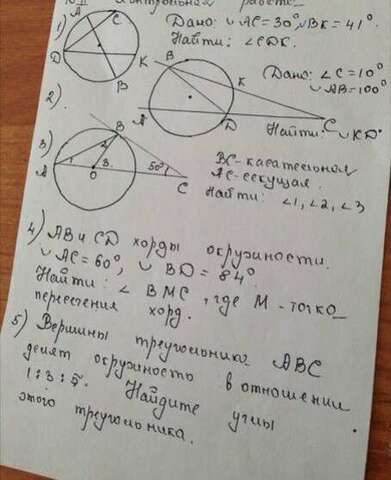 работе
1) A C Дано: ◡AC=30°, ◡BK=41°.
D K B Найти: ∠CDK.
2) B K A D C Дано: ∠C=10°
◡AB=100°
Найти: ◡KD
3) A B O C 1 2 3 50° BC-касательная
AC-секущая.
Найти: ∠1, ∠2, ∠3
4) AB и CD хорды окружности.
◡AC=60°, ◡BD=84°.
Найти: ∠BMC, где M-точка
пересечения хорд.
5) Вершины треугольника ABC
делят окружность в отношении
1:3:5. Найдите углы
этого треугольника.